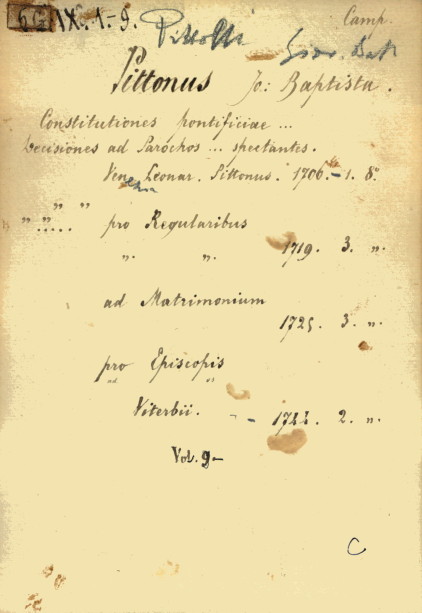 6 G IX. 1-9.
Camp.
Pittoni
Giov. Bat
Pittonus Jo: Baptista.
Constitutiones pontificiae ...
Decisiones ad Parochos ... spectantes.
Ven Leonar. Pittonus. 1706 - 1. 8º
ezia
" " .... " pro Regularibus
" " 1719. 3. "
ad Matrimonium
1725. 3. "
pro Episcopis
Viterbii. - - 2. "
Vol. 9-
C